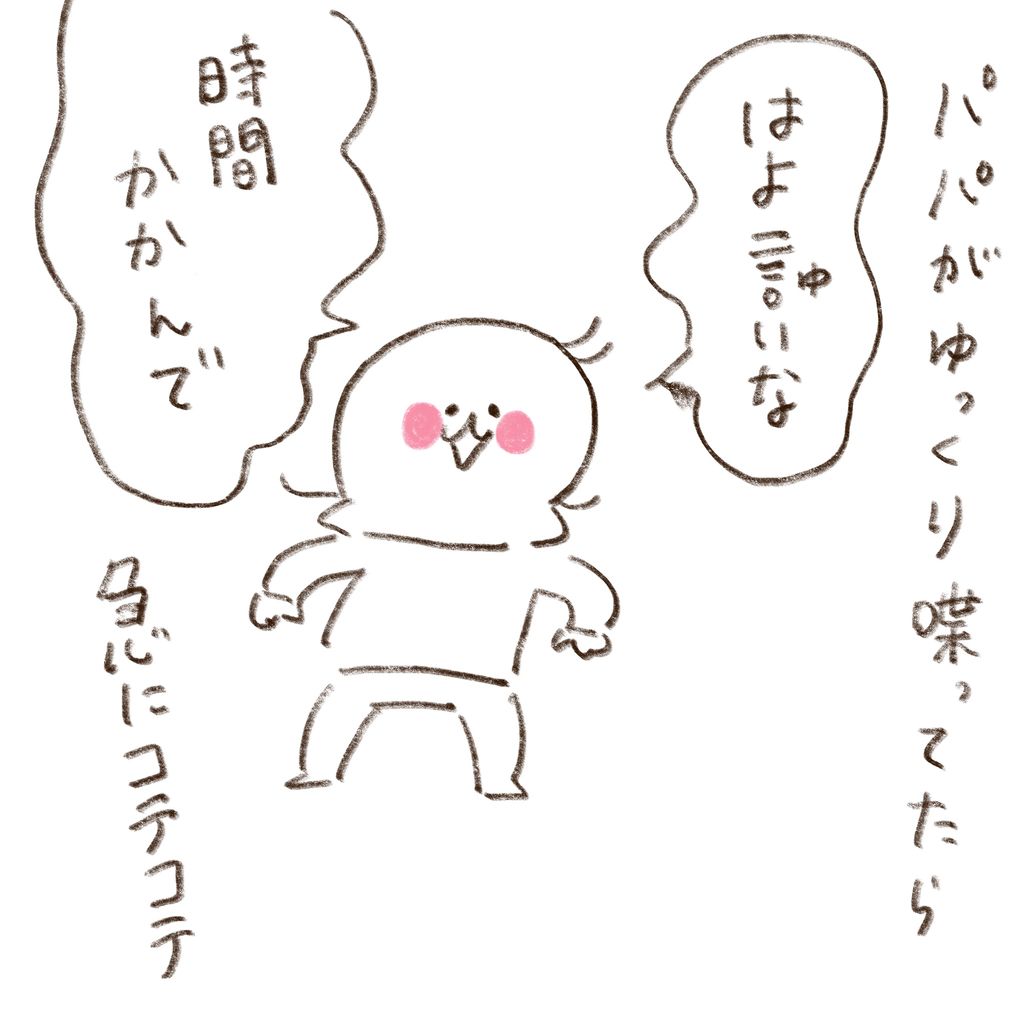 パパがゆっくり喋ってたら
はよ言いな
ゆ
時間
かかんで
急にコテコテ